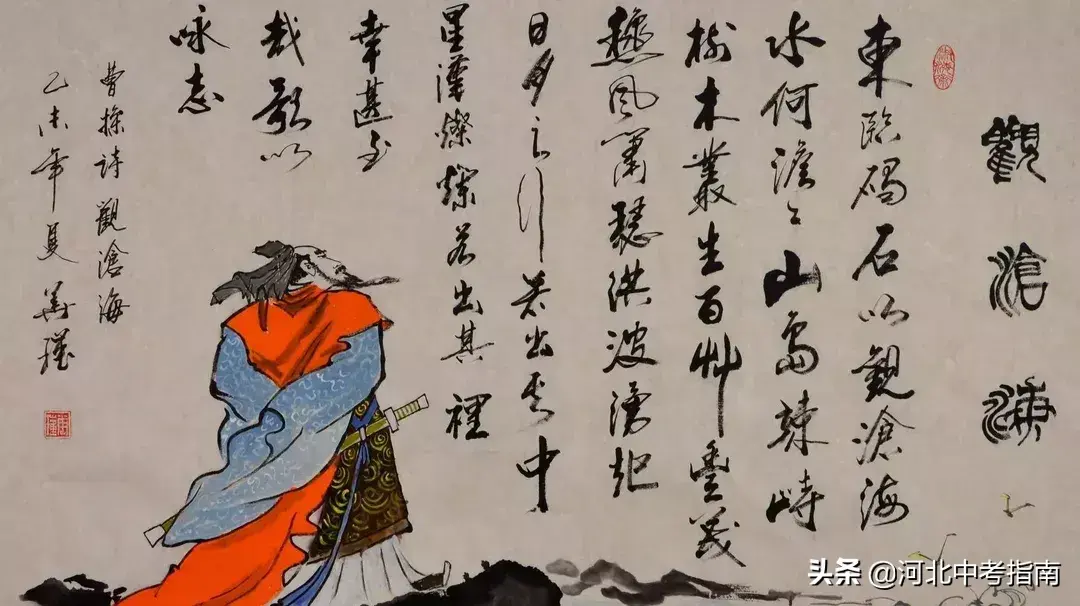 觀滄海
東臨碣石以觀滄海
水何澹々山島竦峙
樹木叢生百艸豐茂
龝風蕭瑟洪波湧起
日月之行若出其中
星漢燦爛若出其裡
幸甚至
哉歌以
咏志
曹操詩觀滄海
乙未年夏
头条 @河北中考指南